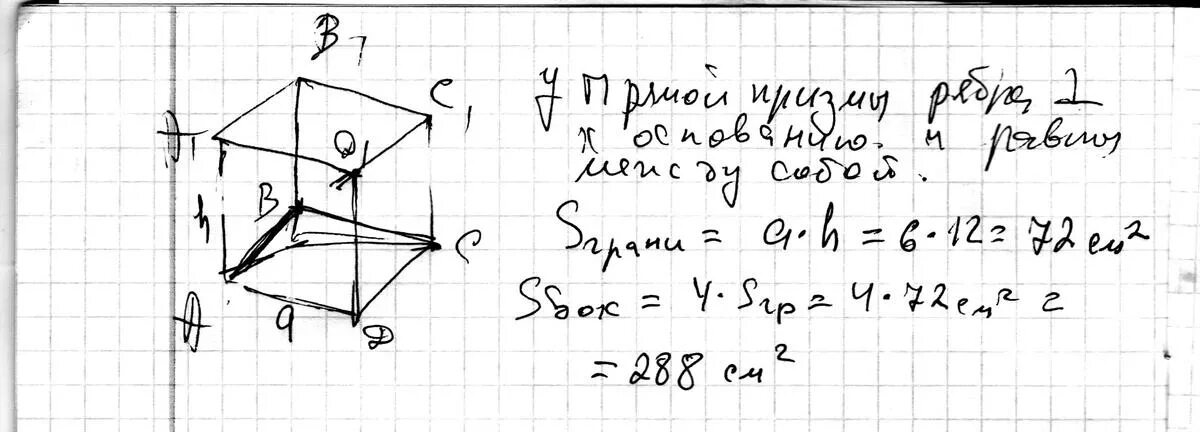 B1
C1
A1
D1
h
B
C
A
a
D
У прямой призмы рябра ⊥
к основанию. и равны
между собой.
Sграни = a·h = 6·12 = 72 см²
Sбок = 4·Sгр = 4·72см² =
= 288 см²